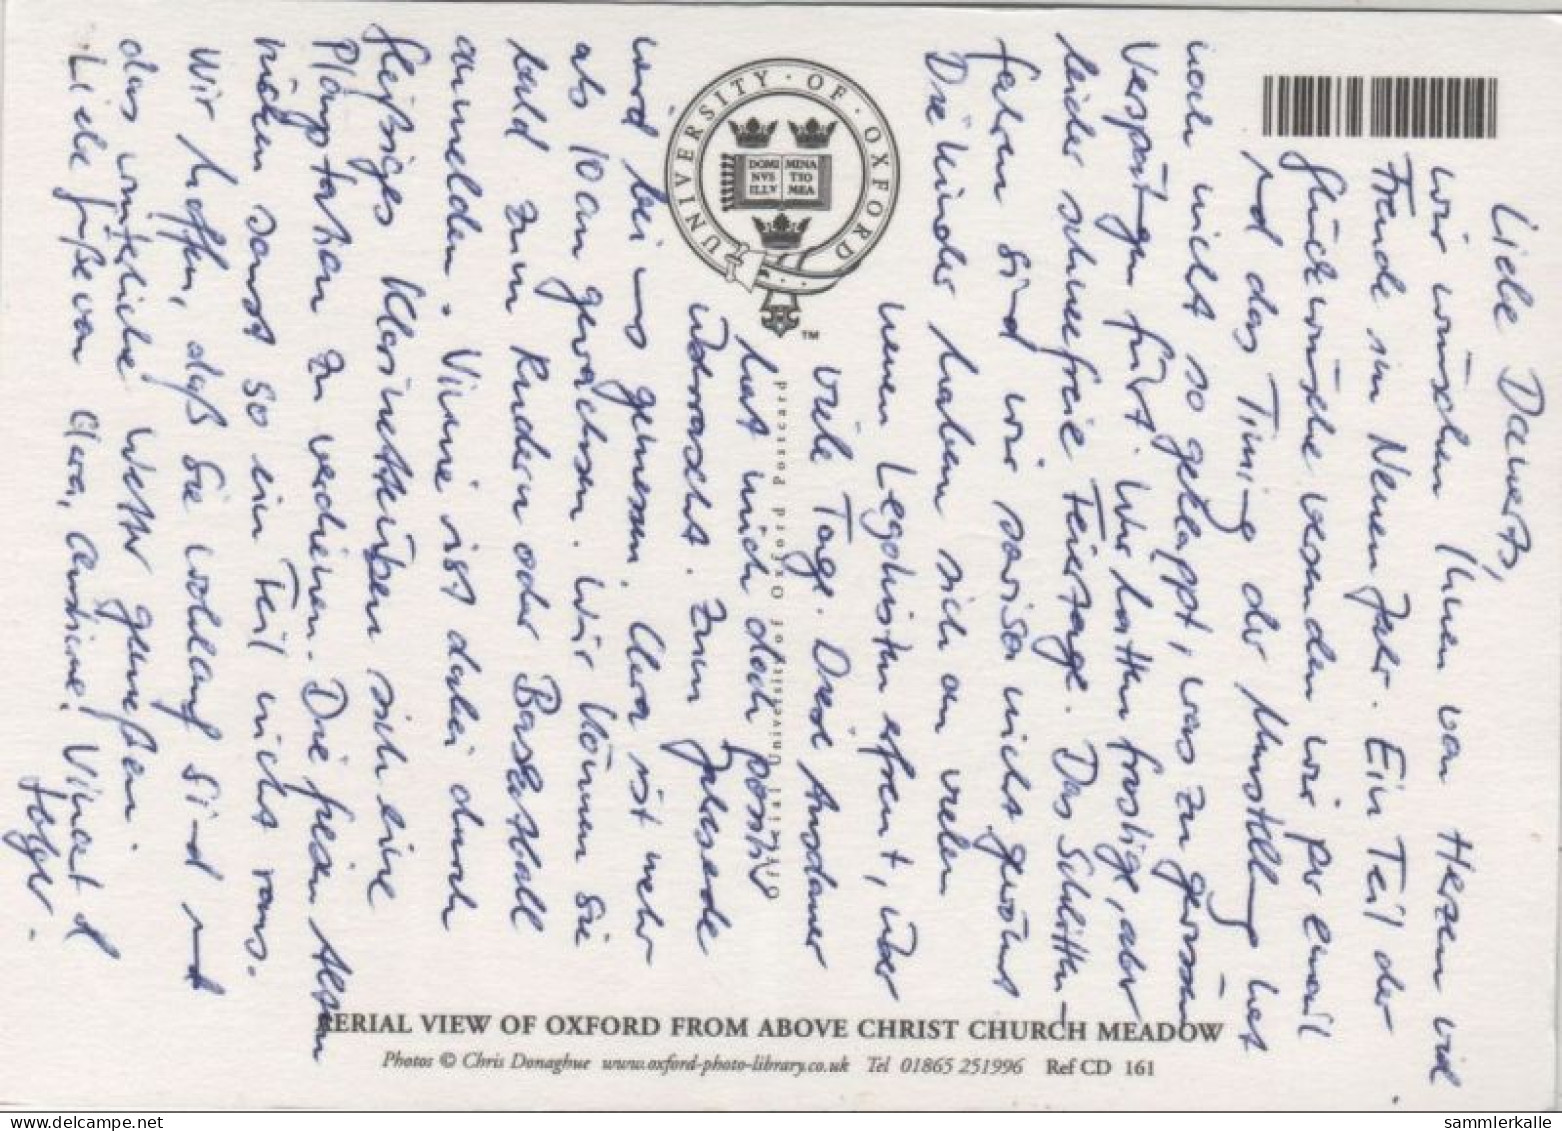 Liebe Dawerts,
wir wünschen Ihnen von Herzen viel
Freude im Neuen Jahr. Ein Teil der
Glückwünsche versenden wir per email
und das Timing der Umstellung hat
noch nicht so geklappt, was zu gewissen
Verspätungen führt. Wir hatten frostige, aber
leider schneefreie Feiertage. Das Schlitten-
fahren sind wir sowieso nicht gewöhnt
Die Kinder haben sich an vielen
neuen Legokisten erfreut, über
viele Tage. Diese Ausdauer
hat mich doch positiv
überrascht. Zum Jahresende
wird bei uns gemessen. Clara ist mehr
als 10cm gewachsen. Wir können Sie
bald zum Rudern oder Basketball
anmelden. Vinne ist dabei durch
fleißiges Klarinetteüben sich eine
Playstation zu verdienen. Die fiesen Altern
rücken sonst so ein Teil nicht raus.
Wir hoffen, daß Sie wohlauf sind und
das winterliche Wetter genießen.
Liebe Grüße von Clara, Christine, Vincent &
Holger.
UNIVERSITY · OF · OXFORD
DOMI NVS ILLV MINA TIO MEA
TM
Official University of Oxford Postcard
AERIAL VIEW OF OXFORD FROM ABOVE CHRIST CHURCH MEADOW
Photos © Chris Donaghue www.oxford-photo-library.co.uk Tel 01865 251996 Ref CD 161
sammlerkalle